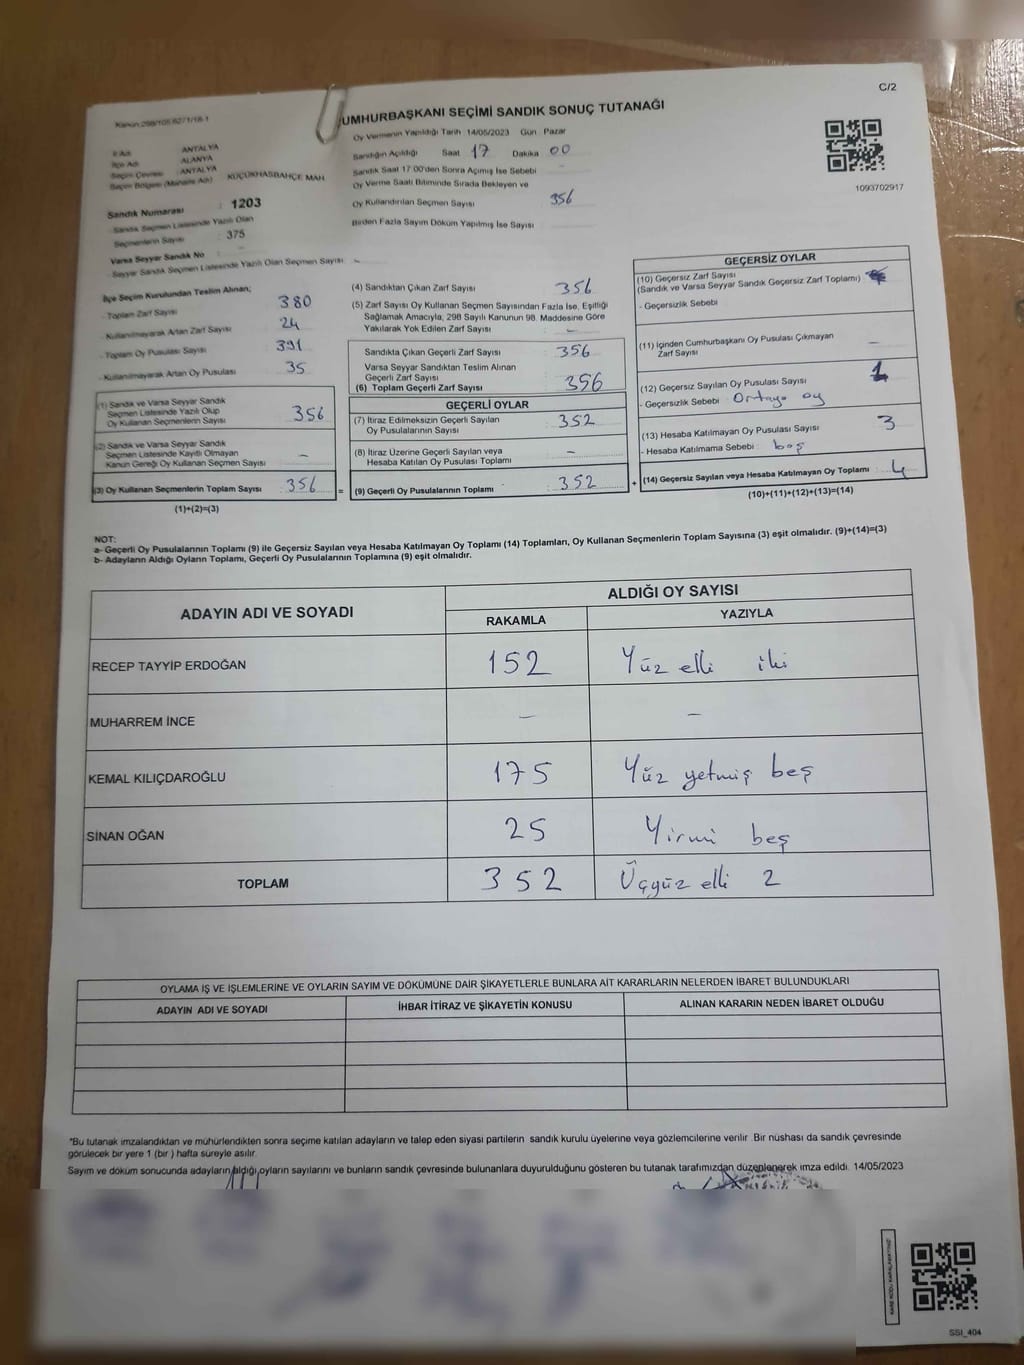 C/2
Kanun:298/105,6271/18-1
UMHURBAŞKANI SEÇİMİ SANDIK SONUÇ TUTANAĞI
Oy Vermenin Yapıldığı Tarih 14/05/2023 Gün Pazar
İl Adı ANTALYA
İlçe Adı ALANYA
Seçim Çevresi ANTALYA
Seçim Bölgesi (Mahalle Adı) KÜÇÜKHASBAHÇE MAH.
Sandık Numarası : 1203
Sandık Seçmen Listesinde Yazılı Olan
Seçmenlerin Sayısı : 375
Varsa Seyyar Sandık No : -
Seyyar Sandık Seçmen Listesinde Yazılı Olan Seçmen Sayısı: -
Sandığın Açıldığı Saat 17 Dakika 00
Sandık Saat 17:00'den Sonra Açımış İse Sebebi -
Oy Verme Saati Bitiminde Sırada Bekleyen ve
Oy Kullandırılan Seçmen Sayısı 356
Birden Fazla Sayım Döküm Yapılmış İse Sayısı
1093702917
İlçe Seçim Kurulundan Teslim Alınan;
- Toplam Zarf Sayısı 380
- Kullanılmayarak Artan Zarf Sayısı 24
- Toplam Oy Pusulası Sayısı 391
- Kullanılmayarak Artan Oy Pusulası 35
(1) Sandık ve Varsa Seyyar Sandık
Seçmen Listesinde Yazılı Olup
Oy Kullanan Seçmenlerin Sayısı : 356
(2) Sandık ve Varsa Seyyar Sandık
Seçmen Listesinde Kayıtlı Olmayan
Kanun Gereği Oy Kullanan Seçmen Sayısı : -
(3) Oy Kullanan Seçmenlerin Toplam Sayısı : 356 =
(1)+(2)=(3)
(4) Sandıktan Çıkan Zarf Sayısı : 356
(5) Zarf Sayısı Oy Kullanan Seçmen Sayısından Fazla İse, Eşitliği
Sağlamak Amacıyla, 298 Sayılı Kanunun 98. Maddesine Göre
Yakılarak Yok Edilen Zarf Sayısı : -
Sandıkta Çıkan Geçerli Zarf Sayısı : 356
Varsa Seyyar Sandıktan Teslim Alınan
Geçerli Zarf Sayısı
(6) Toplam Geçerli Zarf Sayısı : 356
GEÇERLİ OYLAR
(7) İtiraz Edilmeksizin Geçerli Sayılan
Oy Pusulalarının Sayısı : 352
(8) İtiraz Üzerine Geçerli Sayılan veya
Hesaba Katılan Oy Pusulası Toplamı : -
(9) Geçerli Oy Pusulalarının Toplamı : 352 +
GEÇERSİZ OYLAR
(10) Geçersiz Zarf Sayısı
(Sandık ve Varsa Seyyar Sandık Geçersiz Zarf Toplamı) :
- Geçersizlik Sebebi
(11) İçinden Cumhurbaşkanı Oy Pusulası Çıkmayan
Zarf Sayısı -
(12) Geçersiz Sayılan Oy Pusulası Sayısı 1
- Geçersizlik Sebebi : Ortaya oy
(13) Hesaba Katılmayan Oy Pusulası Sayısı : 3
- Hesaba Katılmama Sebebi : boş
(14) Geçersiz Sayılan veya Hesaba Katılmayan Oy Toplamı : 4
(10)+(11)+(12)+(13)=(14)
NOT:
a- Geçerli Oy Pusulalarının Toplamı (9) ile Geçersiz Sayılan veya Hesaba Katılmayan Oy Toplamı (14) Toplamları, Oy Kullanan Seçmenlerin Toplam Sayısına (3) eşit olmalıdır. (9)+(14)=(3)
b- Adayların Aldığı Oyların Toplamı, Geçerli Oy Pusulalarının Toplamına (9) eşit olmalıdır.
ADAYIN ADI VE SOYADI
ALDIĞI OY SAYISI
RAKAMLA YAZIYLA
RECEP TAYYİP ERDOĞAN 152 Yüz elli iki
MUHARREM İNCE - -
KEMAL KILIÇDAROĞLU 175 Yüz yetmiş beş
SİNAN OĞAN 25 Yirmi beş
TOPLAM 352 Üçyüz elli 2
OYLAMA İŞ VE İŞLEMLERİNE VE OYLARIN SAYIM VE DÖKÜMÜNE DAİR ŞİKAYETLERLE BUNLARA AİT KARARLARIN NELERDEN İBARET BULUNDUKLARI
ADAYIN ADI VE SOYADI İHBAR İTİRAZ VE ŞİKAYETİN KONUSU ALINAN KARARIN NEDEN İBARET OLDUĞU
*Bu tutanak imzalandıktan ve mühürlendikten sonra seçime katılan adayların ve talep eden siyasi partilerin sandık kurulu üyelerine veya gözlemcilerine verilir. Bir nüshası da sandık çevresinde
görülecek bir yere 1 (bir ) hafta süreyle asılır.
Sayım ve döküm sonucunda adayların aldığı oyların sayılarını ve bunların sandık çevresinde bulunanlara duyurulduğunu gösteren bu tutanak tarafımızdan düzenlenerek imza edildi. 14/05/2023
SSI_404